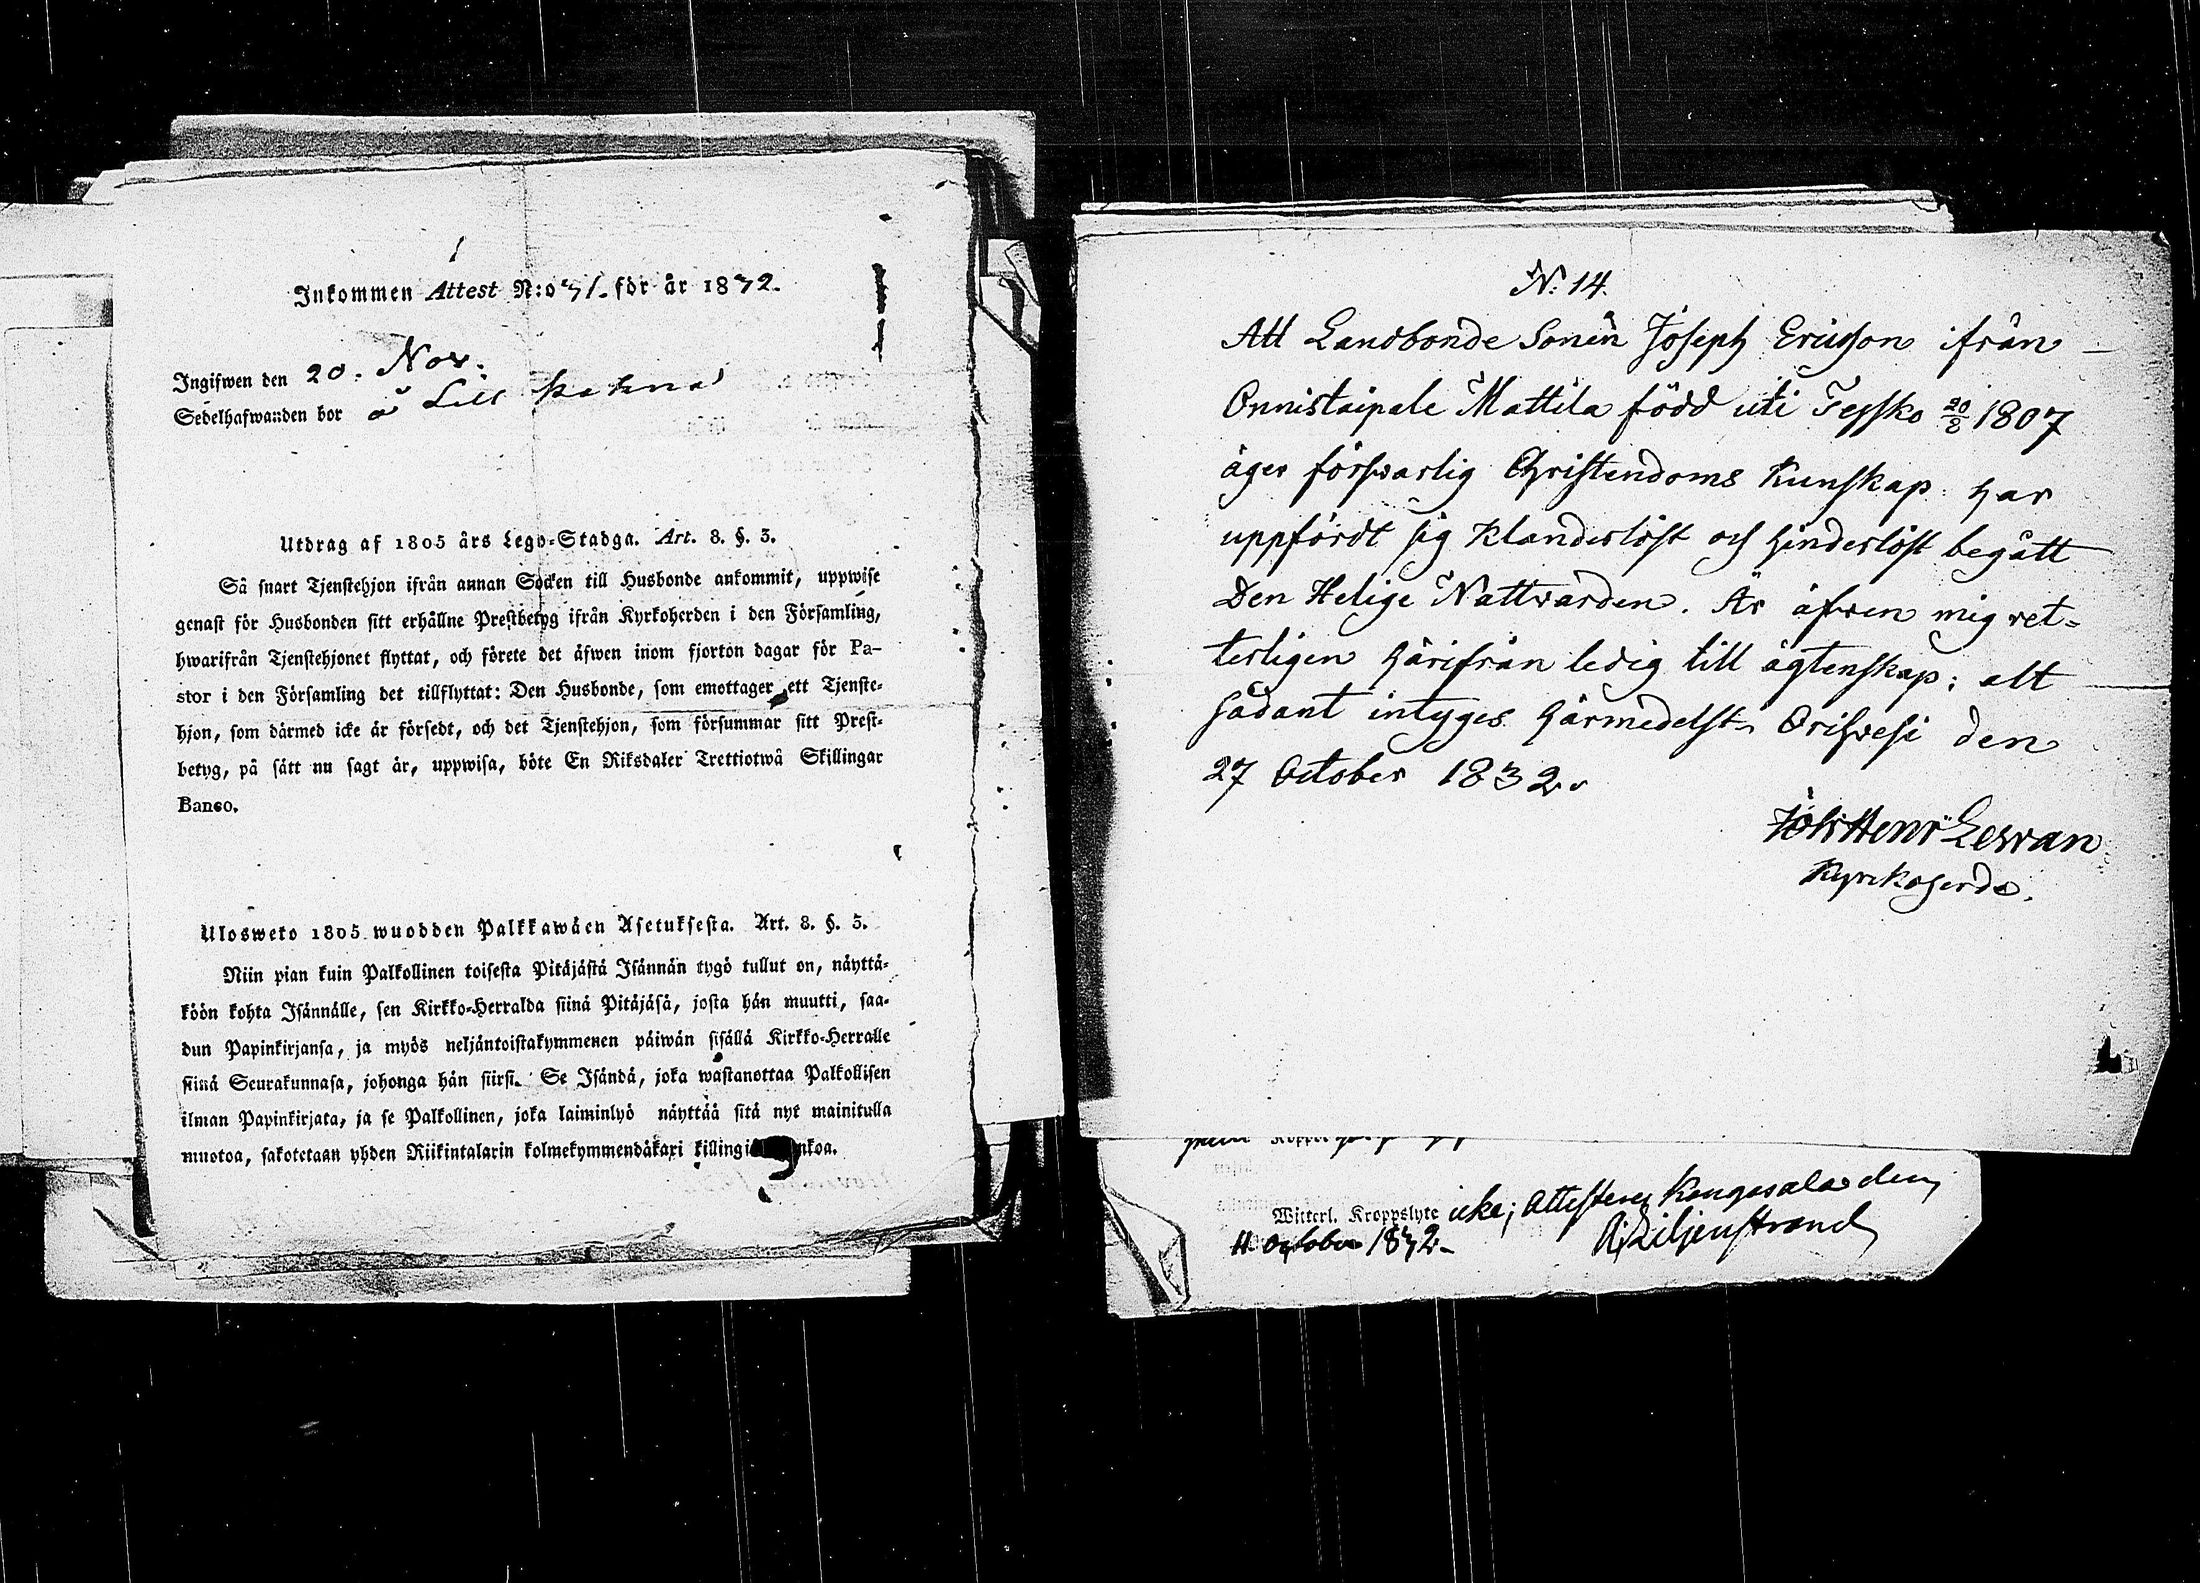 Inkommen Attest N:o 31. för år 1832.
Ingifwen den 20. Nov.
Sedelhafwanden bor å Lill
Utdrag af 1805 års Lego-Stadga. Art. 8. §. 3.
Så snart Tjenstehjon ifrån annan Socken till Husbonde ankommit, uppwise
genast för Husbonden sitt erhållne Prestbetyg ifrån Kyrkoherden i den Församling,
hwarifrån Tjenstehjonet flyttat, och förete det äfwen inom fjorton dagar för Pa-
stor i den Församling det tillflyttat: Den Husbonde, som emottager ett Tjenste-
hjon, som därmed icke är försedt, och det Tjenstehjon, som försummar sitt Prest-
betyg, på sätt nu sagt är, uppwisa, böte En Riksdaler Trettiotwå Skillingar
Banco.
Ulosweto 1805 wuodden Palkkawäen Asetuksesta. Art. 8. §. 3.
Niin pian kuin Palkollinen toisesta Pitäjästä Isännän tygö tullut on, näyttä-
köön kohta Isännälle, sen Kirkko-Herralda siinä Pitäjäsä, josta hän muutti, saa-
dun Papinkirjansa, ja myös neljäntoistakymmenen päiwän sisällä Kirkko-Herralle
siinä Seurakunnasa, johonga hän siirsi. Se Isändä, joka wastanottaa Palkollisen
ilman Papinkirjata, ja se Palkollinen, joka laiminlyö näyttää sitä nyt mainitulla
muotoa, sakotetaan yhden Riikintalarin kolmekymmendäkaxi killingi nkoa.
N: 14.
Att Landbonde Sonen Joseph Ericsson ifrån
Onnistaipale Mattila född uti Teisko 20/8 1807
äger försvarlig Christendoms Kunskap: har
uppfördt sig Klanderlöst och hinderlöst begått
Den Helige Nattvarden. Är äfven mig vet-
terligen härifrån ledig till ägtenskap; att
sådant intyges härmedelst. Orihvesi den
27 October 1832.
Joh: Henr: Levvan
Kyrkoherde.
Witterl. Kroppslyte icke; Attesterar Kangasala den
11 October 1832.
Liljenstrand